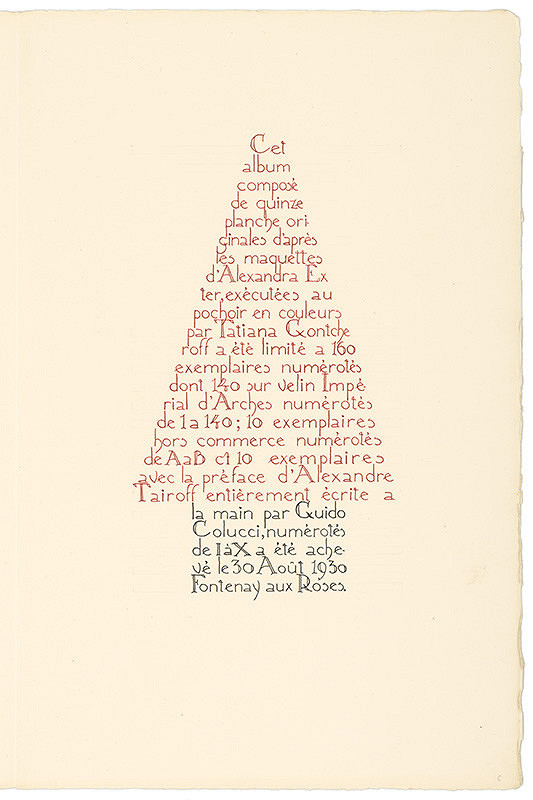 Cet
album
composé
de quinze
planche ori-
ginales d'après
les maquettes
d'Alexandra Ex
ter, exécutées au
pochoir en couleurs
par Tatiana Gontche
roff a été limité a 160
exemplaires numérotés
dont 140 sur velin Impé-
rial d'Arches numérotés
de 1 a 140; 10 exemplaires
hors commerce numérotés
de A a B et 10 exemplaires
avec la préface d'Alexandre
Tairoff entièrement écrite a
la main par Guido
Colucci, numérotés
de I à X a été ache-
vé le 30 Août 1930
Fontenay aux Roses.